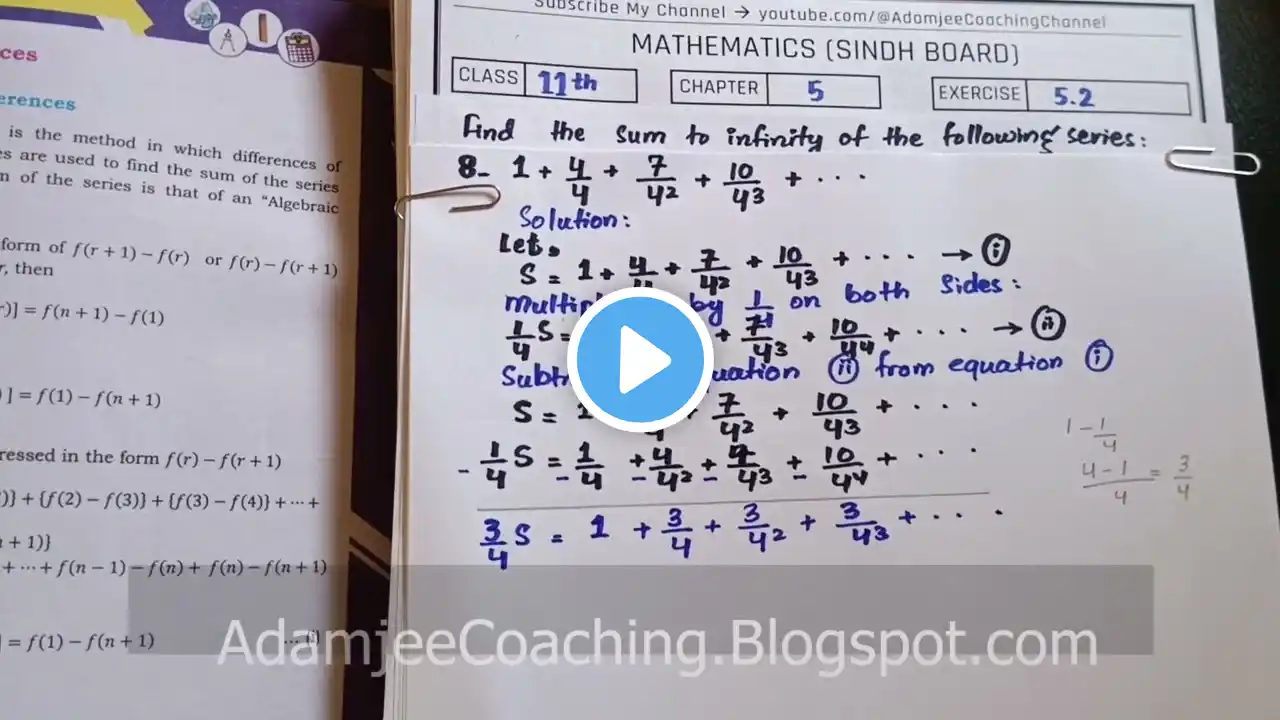 ces
erences
is the method in which differences of
es are used to find the sum of the series
n of the series is that of an "Algebraic
form of f(r + 1) − f(r) or f(r) − f(r + 1)
r, then
)] = f(n + 1) − f(1)
) ] = f(1) − f(n + 1)
ressed in the form f(r) − f(r + 1)
)} + {f(2) − f(3)} + {f(3) − f(4)} + ⋯ +
n + 1)}
+ ⋯ + f(n − 1) − f(n) + f(n) − f(n + 1)
] = f(1) − f(n + 1) ... (i)
Subscribe My Channel → youtube.com/@AdamjeeCoachingChannel
MATHEMATICS (SINDH BOARD)
CLASS 11th CHAPTER 5 EXERCISE 5.2
Find the sum to infinity of the following series:
8- 1 + 4/4 + 7/4² + 10/4³ + ...
Solution:
Let,
S = 1 + 4/4 + 7/4² + 10/4³ + .... → (i)
by 1/4 on both sides:
1/4 S = + 7/4³ + 10/4⁴ + .... → (ii)
(ii) from equation (i)
S = 1 + 7/4² + 10/4³ + ....
- 1/4 S = - 1/4 + 4/4² + 7/4³ + 10/4⁴ + ....
- - -
3/4 S = 1 + 3/4 + 3/4² + 3/4³ + ....
1 - 1/4
4-1/4 = 3/4
AdamjeeCoaching.Blogspot.com